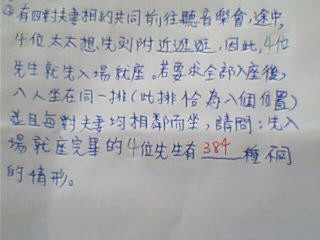 有四對夫妻相約共同前往聽音樂會,途中,
4位太太想先到附近逛逛,因此,4位
先生就先入場就座。若要求全部入座後,
八人坐在同一排(此排恰為八個位置)
並且每對夫妻均相鄰而坐,請問:先入
場就座完畢的4位先生有 384 種不同
的情形。